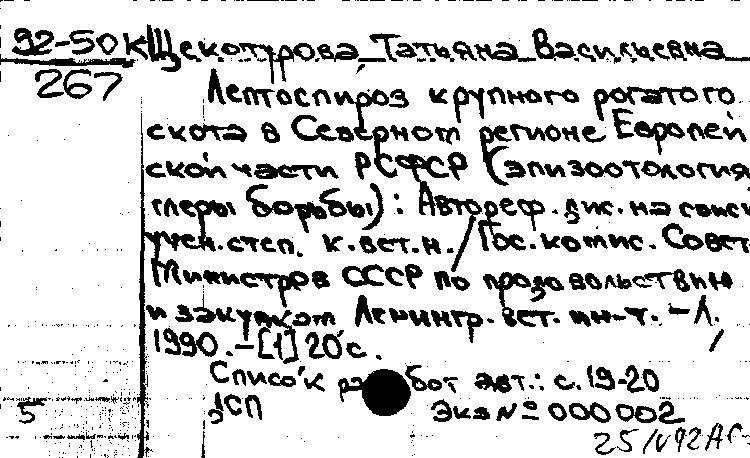 92-50К Щекотурова Татьяна Васильевна
267
Лептоспироз крупного рогатого
скота в Северном регионе Европей
ской части РСФСР (эпизоотология
меры борьбы): Автореф. дис. на соиск
учен. степ. к.вет.н./Гос. комис. Совет
Министров СССР по продовольствию
и закупкам Ленингр. вет. ин-т. – Л.
1990. – [1] 20 с.
Список работ авт.: с. 19-20
5
ЭКЗ № 000002